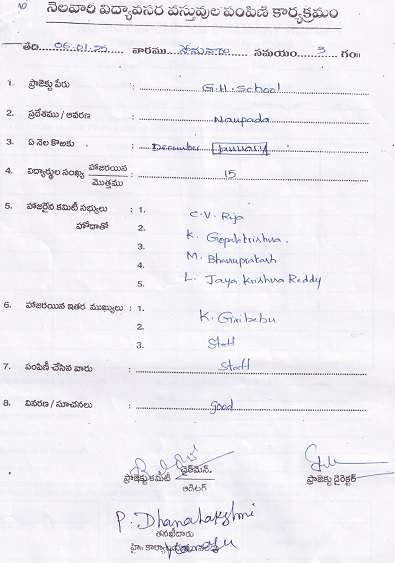 10
నెలవారి విద్యావసర వస్తువుల పంపిణి కార్యక్రమం
తేది 06.01.25 వారము సోమవారం సమయం 3 గం॥
1. ప్రాజెక్టు పేరు : G.H. School
2. ప్రదేశము / ఆవరణ : Naupada
3. ఏ నెల కొఱకు : December January
4. విద్యార్థుల సంఖ్య హాజరయిన / మొత్తము : 15
5. హాజరైన కమిటీ సభ్యులు : 1. C.V. Raja
హోదాతో 2. K. Gopalakrishna.
3. M. Bhanuprakash
4. L. Jaya Krishna Reddy
5.
6. హాజరయిన ఇతర ముఖ్యులు : 1. K. Giribabu
2. Staff
3.
7. పంపిణీ చేసిన వారు : Staff
8. వివరణ / సూచనలు : good
ప్రాజెక్టు కమిటీ చైర్‌మన్, ప్రాజెక్టు డైరెక్టర్
ఆడిటర్
P. Dhanalakshmi
తనఖీదారు